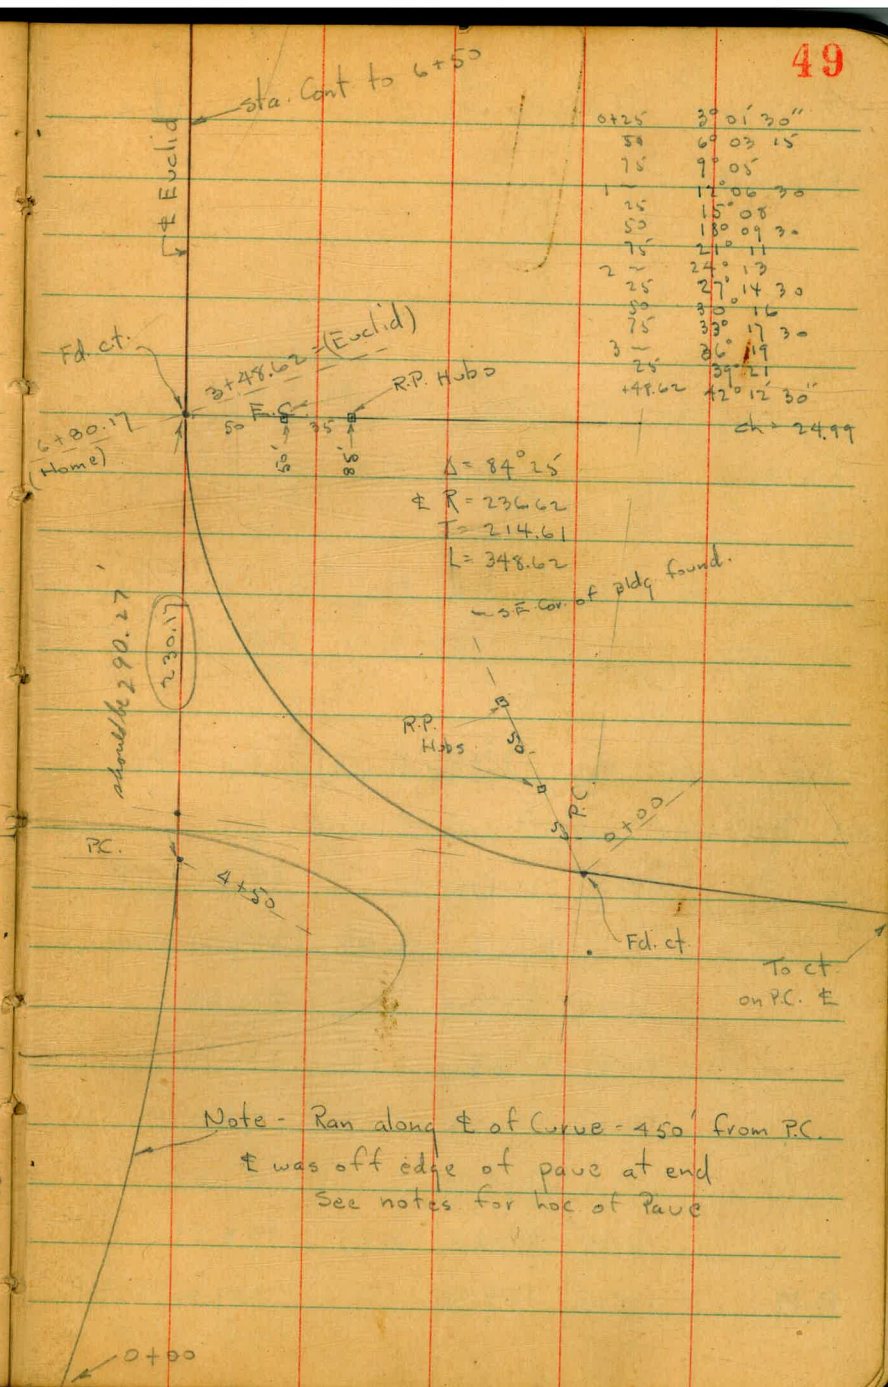 49
sta. Cont to 6+50
℄ Euclid
0+25 3° 01' 30"
50 6° 03 15
75 9° 05
1 ~ 12° 06 30
25 15° 08
50 18° 09 30
75 21° 11
2 ~ 24° 13
25 27° 14 30
50 30° 16
75 33° 17 30
3 ~ 36° 19
25 39° 21
+48.62 42° 12' 30"
ch = 24.99
Fd. ct.
3+48.62 = (Euclid)
E.C.
R.P. Hubs
6+80.17
(Home)
50 35
50'
85'
Δ = 84° 25'
℄ R = 236.62
T = 214.61
L = 348.62
S.E. Cor. of Bldg found.
should be 290.27'
230.17
R.P.
Hubs
50
50
P.C.
0+00
P.C.
4+50
Fd. ct
To ct
on P.C. ℄
Note - Ran along ℄ of Curve - 450' from P.C.
℄ was off edge of pave at end
See notes for Loc of Pave
0+00